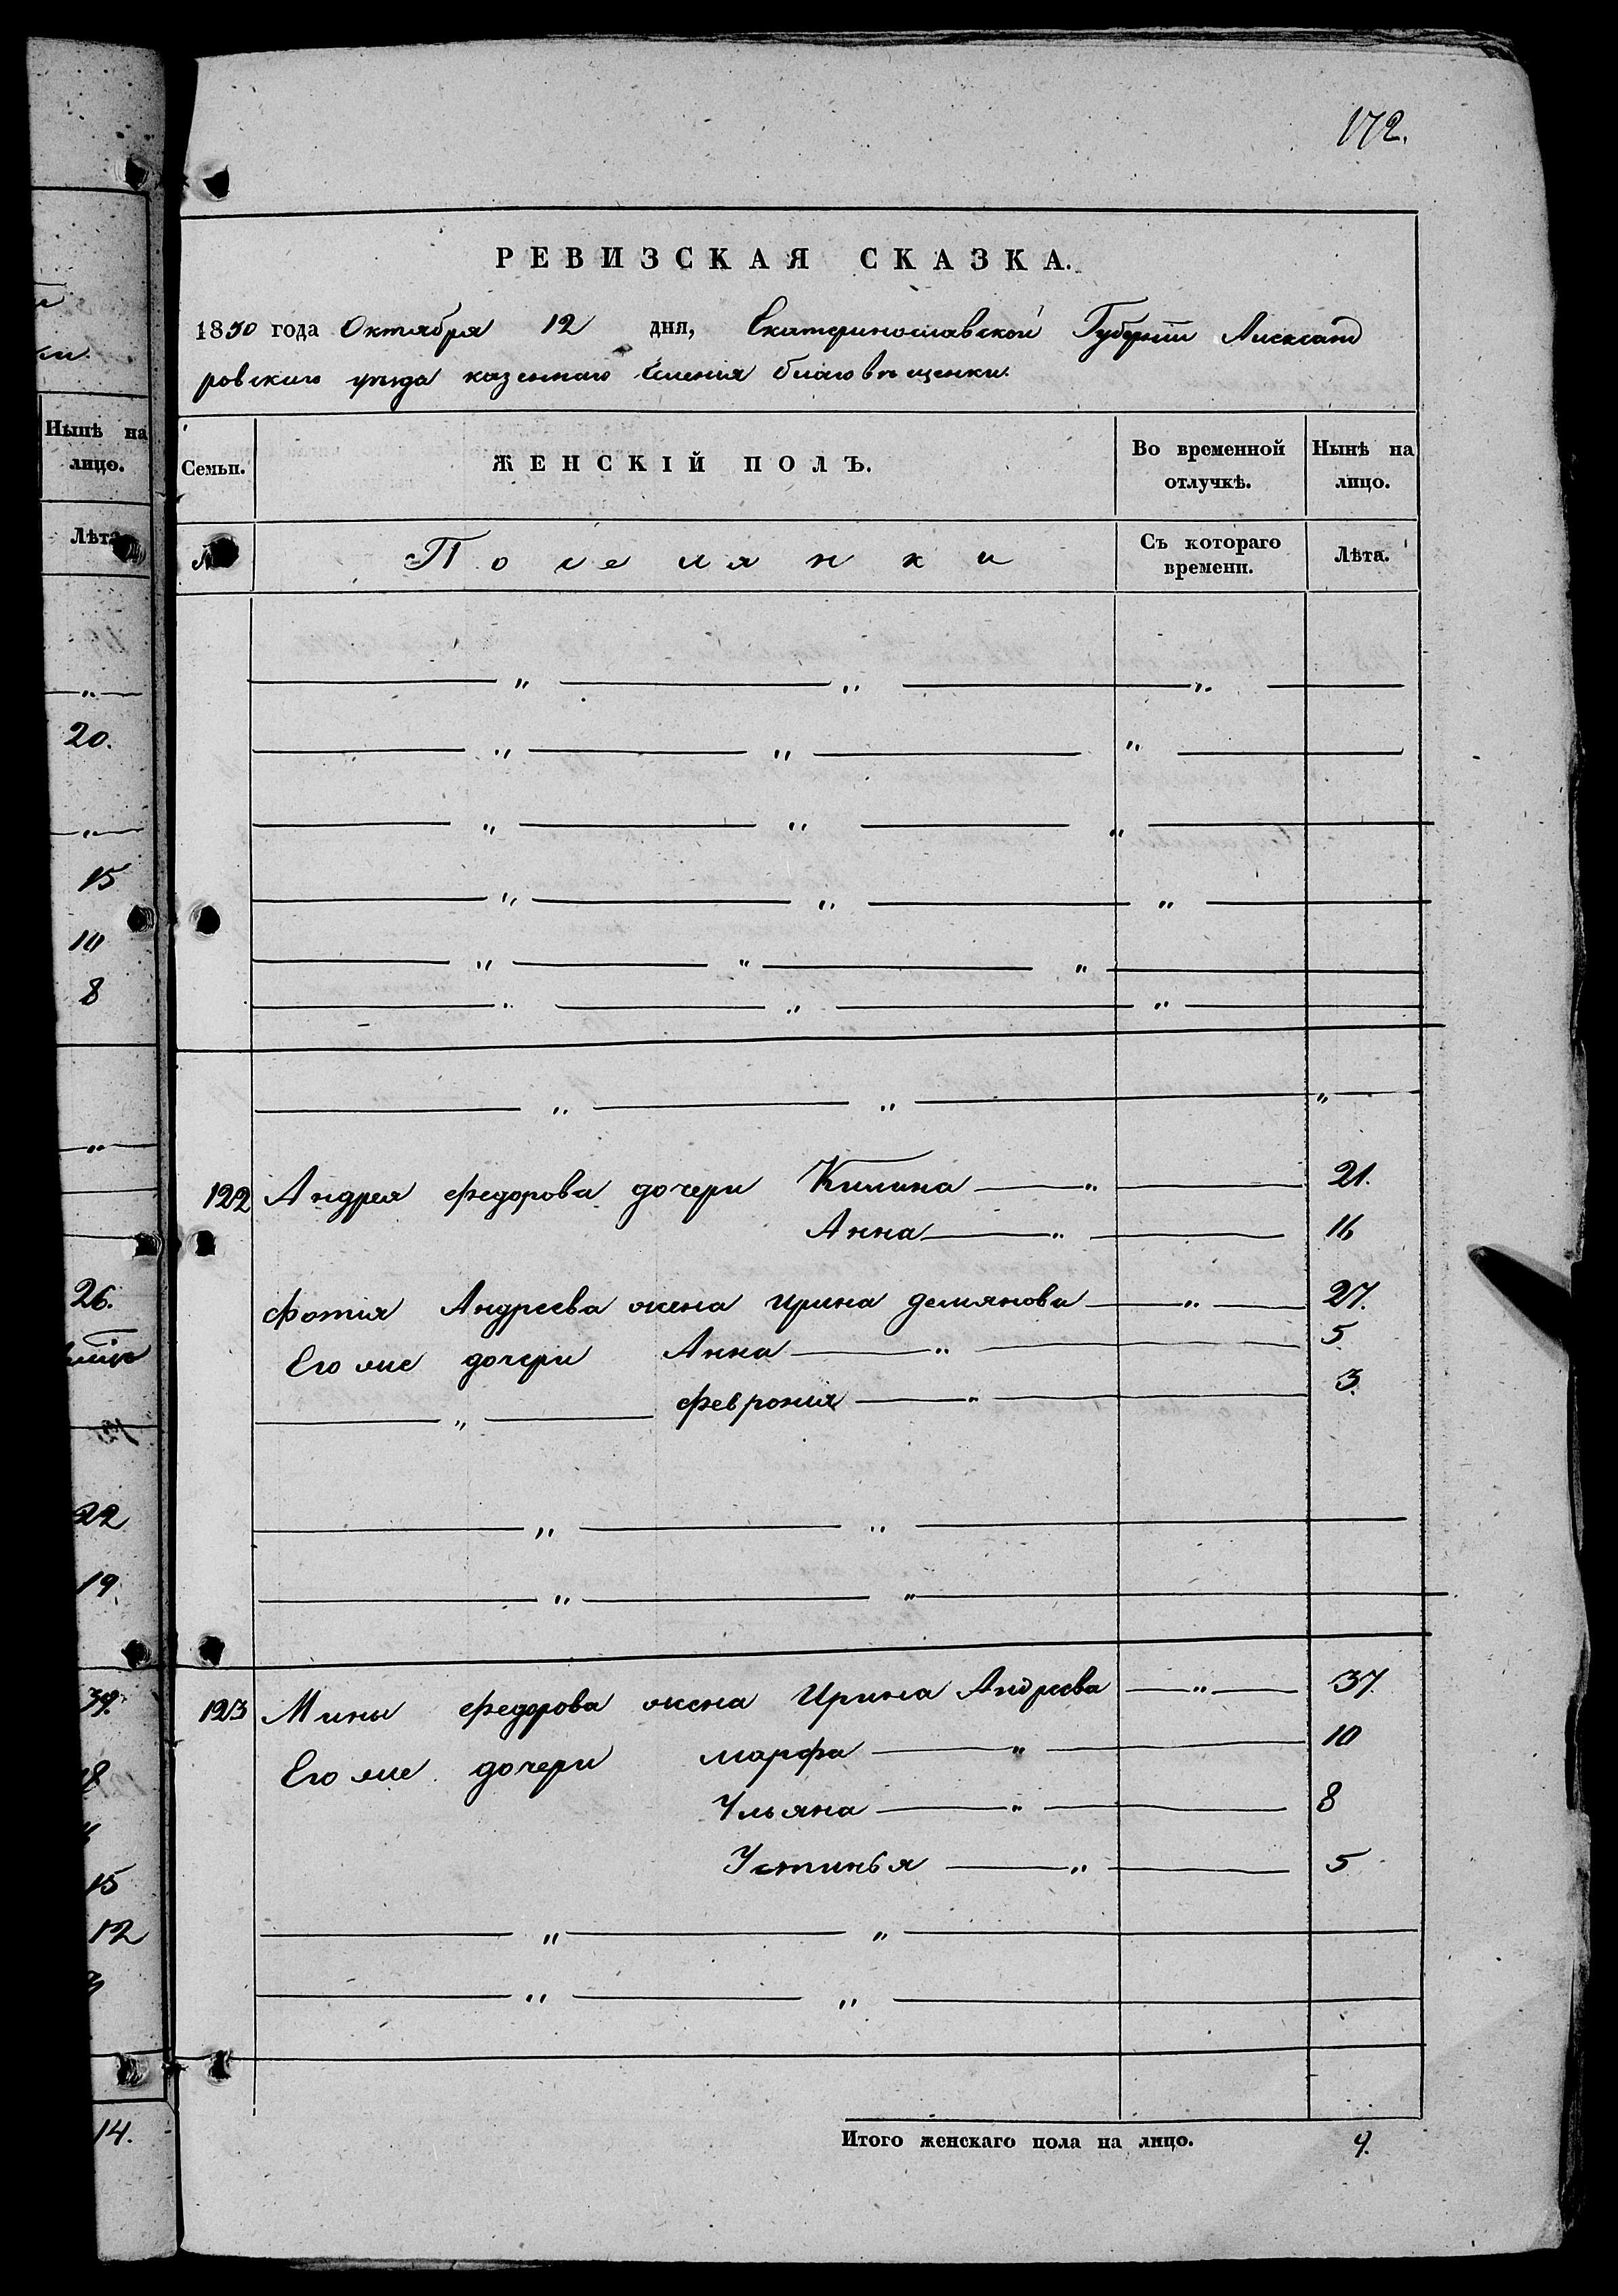 172.
РЕВИЗСКАЯ СКАЗКА.
1850 года Октября 12 дня, Екатеринославской Губернии Александ
ровскаго уезда казеннаго селенія благовѣщенки.
Семьи.
ЖЕНСКІЙ ПОЛЪ.
Во временной отлучкѣ.
Нынѣ на лицо.
№
Поселянки
Съ котораго времени.
Лѣта.
122 Андрея Федорова дочери Килина — " — 21.
Анна — " — 16
Фотія Андреева жена Ирина Демянова — " — 27.
Его же дочери Анна — " — 5.
— " — Феврония — " — 3.
123 Мины Федорова жена Ирина Андреева — " — 37.
Его же дочери Марфа — " — 10
Ульяна — " — 8
Устинья — " — 5
Итого женскаго пола на лицо. 9.
Нынѣ на лицо.
Лѣта
20.
15
10
8
26.
22
19
15
12
14.